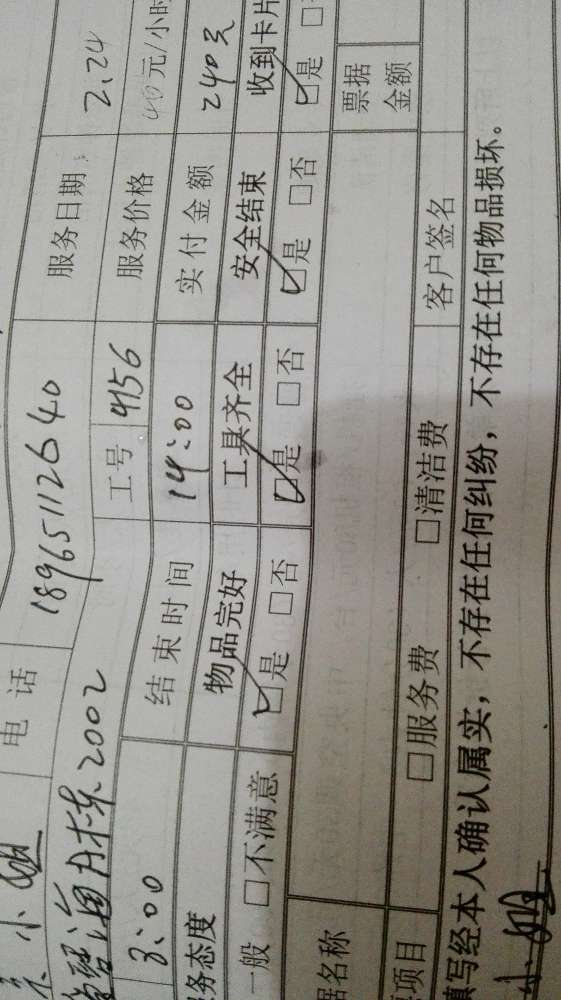 小姐 电话 18965112640 服务日期: 2.24
海丹东2002 工号 4156 服务价格 40元/小时
8:00 结束时间 14:00 实付金额 240元
务态度 物品完好 工具齐全 安全结束 收到卡片
一般 □不满意 ☑是 □否 ☑是 □否 ☑是 □否 ☑是
据名称 票据金额
项目 □服务费 □清洁费 客户签名
填写经本人确认属实，不存在任何纠纷，不存在任何物品损坏。